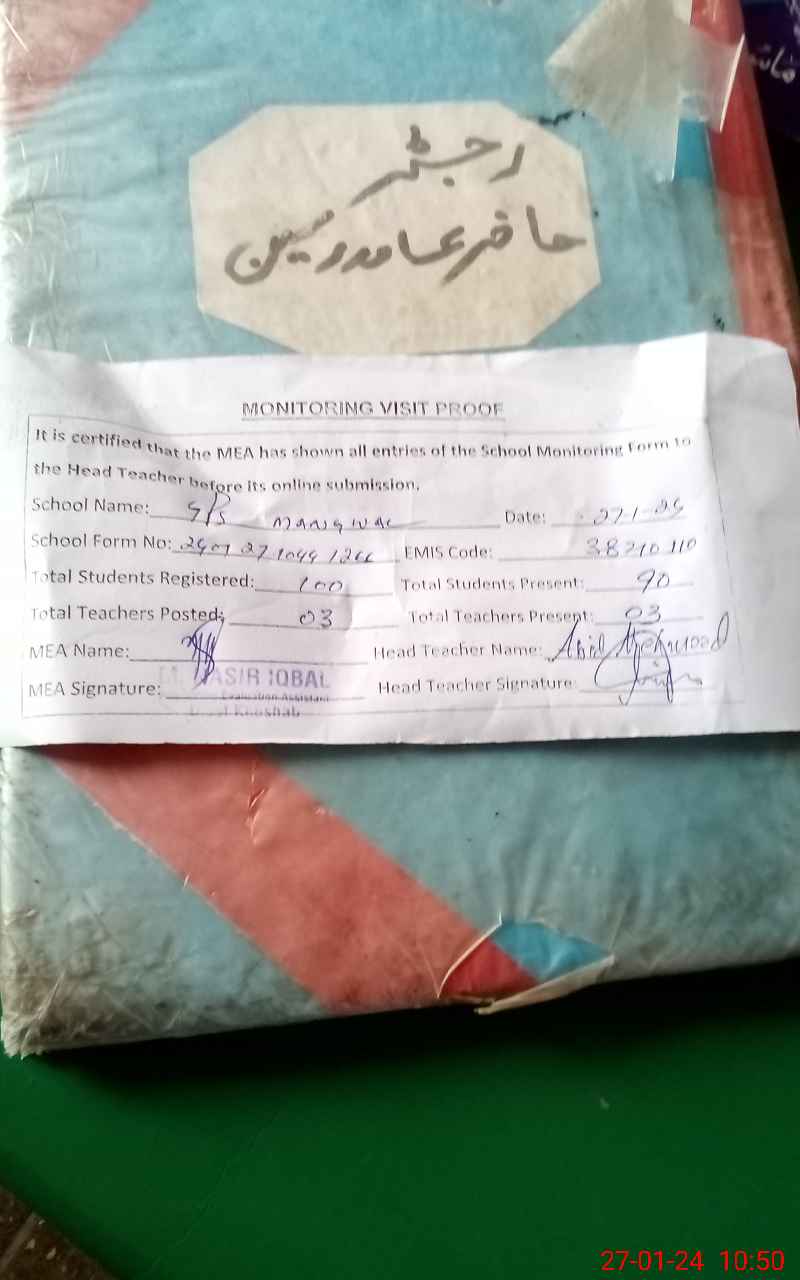 رجسٹر
حاضر عامدرسین
MONITORING VISIT PROOF
It is certified that the MEA has shown all entries of the School Monitoring Form to
the Head Teacher before its online submission.
School Name: GPS MANGWAL Date: 27-1-24
School Form No: EMIS Code: 38210110
Total Students Registered: 100 Total Students Present: 90
Total Teachers Posted: 03 Total Teachers Present: 03
MEA Name: Head Teacher Name: Abid Mehmood
IQBAL
MEA Signature: Head Teacher Signature:
Evaluation Assistant
Khushab
27-01-24 10:50